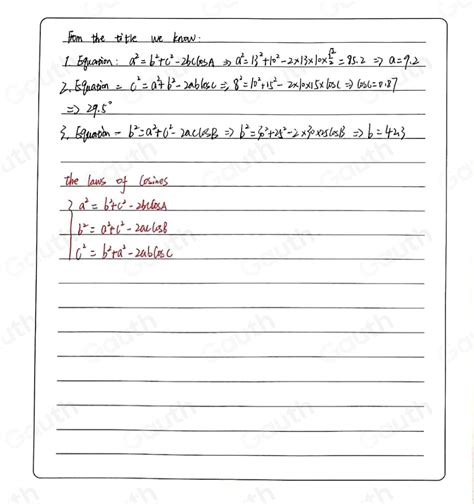 From the title we know:
1. Equation: a² = b² + c² - 2bccosA ⇒ a² = 13² + 10² - 2×13×10×√2/2 = 85.2 ⇒ a = 9.2
2. Equation = c² = a² + b² - 2abcosc ⇒ 8² = 10² + 15² - 2×10×15×cosc ⇒ cosc = 0.87
⇒ 29.5°
3. Equation - b² = a² + c² - 2accosB ⇒ b² = 30² + 25² - 2×30×25cosB ⇒ b = 42.3
the laws of Cosines
a² = b² + c² - 2bccosA
b² = a² + c² - 2accosB
c² = b² + a² - 2abcosC